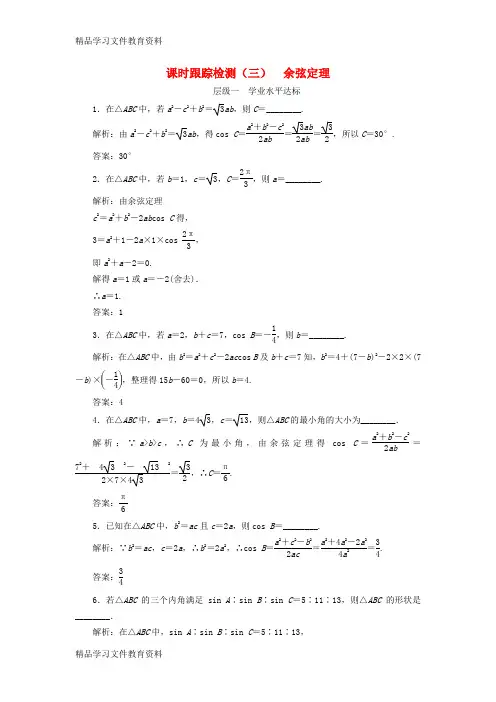 精品学习文件教育资料
课时跟踪检测（三） 余弦定理
层级一 学业水平达标
1．在△ABC中，若a²－c²＋b²＝√3ab，则C＝________.
解析：由a²－c²＋b²＝√3ab，得cos C＝(a²＋b²－c²)/2ab＝√3ab/2ab＝√3/2，所以C＝30°.
答案：30°
2．在△ABC中，若b＝1，c＝√3，C＝2π/3，则a＝________.
解析：由余弦定理
c²＝a²＋b²－2abcos C得，
3＝a²＋1－2a×1×cos 2π/3，
即a²＋a－2＝0.
解得a＝1或a＝－2(舍去)．
∴a＝1.
答案：1
3．在△ABC中，若a＝2，b＋c＝7，cos B＝－1/4，则b＝________.
解析：在△ABC中，由b²＝a²＋c²－2accos B及b＋c＝7知，b²＝4＋(7－b)²－2×2×(7
－b)×(－1/4)，整理得15b－60＝0，所以b＝4.
答案：4
4．在△ABC中，a＝7，b＝4√3，c＝√13，则△ABC的最小角的大小为________．
解析：∵a>b>c，∴C为最小角，由余弦定理得cos C＝(a²＋b²－c²)/2ab＝
(7²＋ 4√3 ²－ √13 ²)/(2×7×4√3)＝√3/2，∴C＝π/6.
答案：π/6
5．已知在△ABC中，b²＝ac且c＝2a，则cos B＝________.
解析：∵b²＝ac，c＝2a，∴b²＝2a²，∴cos B＝(a²＋c²－b²)/2ac＝(a²＋4a²－2a²)/4a²＝3/4.
答案：3/4
6．若△ABC的三个内角满足sin A∶sin B∶sin C＝5∶11∶13，则△ABC的形状是
________．
解析：在△ABC中，sin A∶sin B∶sin C＝5∶11∶13，
精品学习文件教育资料